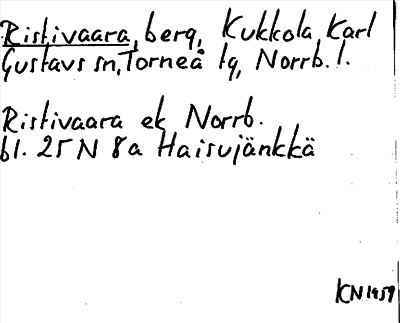 Ristivaara, berg, Kukkola, Karl
Gustavs sn, Torneå tg, Norrb. l.
Ristivaara ek Norrb.
bl. 25 N 8a Haisujänkkä
KN 1959